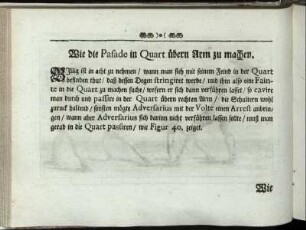 Wie die Pasade in Quart übern Arm zu machen.
ist in acht zu nehmen / wann man sich mit seinem Feind in der Quart
befunden hat / daß dessen Degen stringiret werde / und ihm also ein Fain-
te in die Quart zu machen suche / wofern er sich dann verführen lasset / so cavire
man durch und passire in der Quart übern rechten Arm / die Schultern wohl
zuruck haltend / sonsten mögte Adversarius mit der Volte einen Arrest anbrin-
gen / wann aber Adversarius sich darein nicht verführen lassen solte / muß man
gerad in die Quart passiren / wie Figur 40. zeiget.
Wie